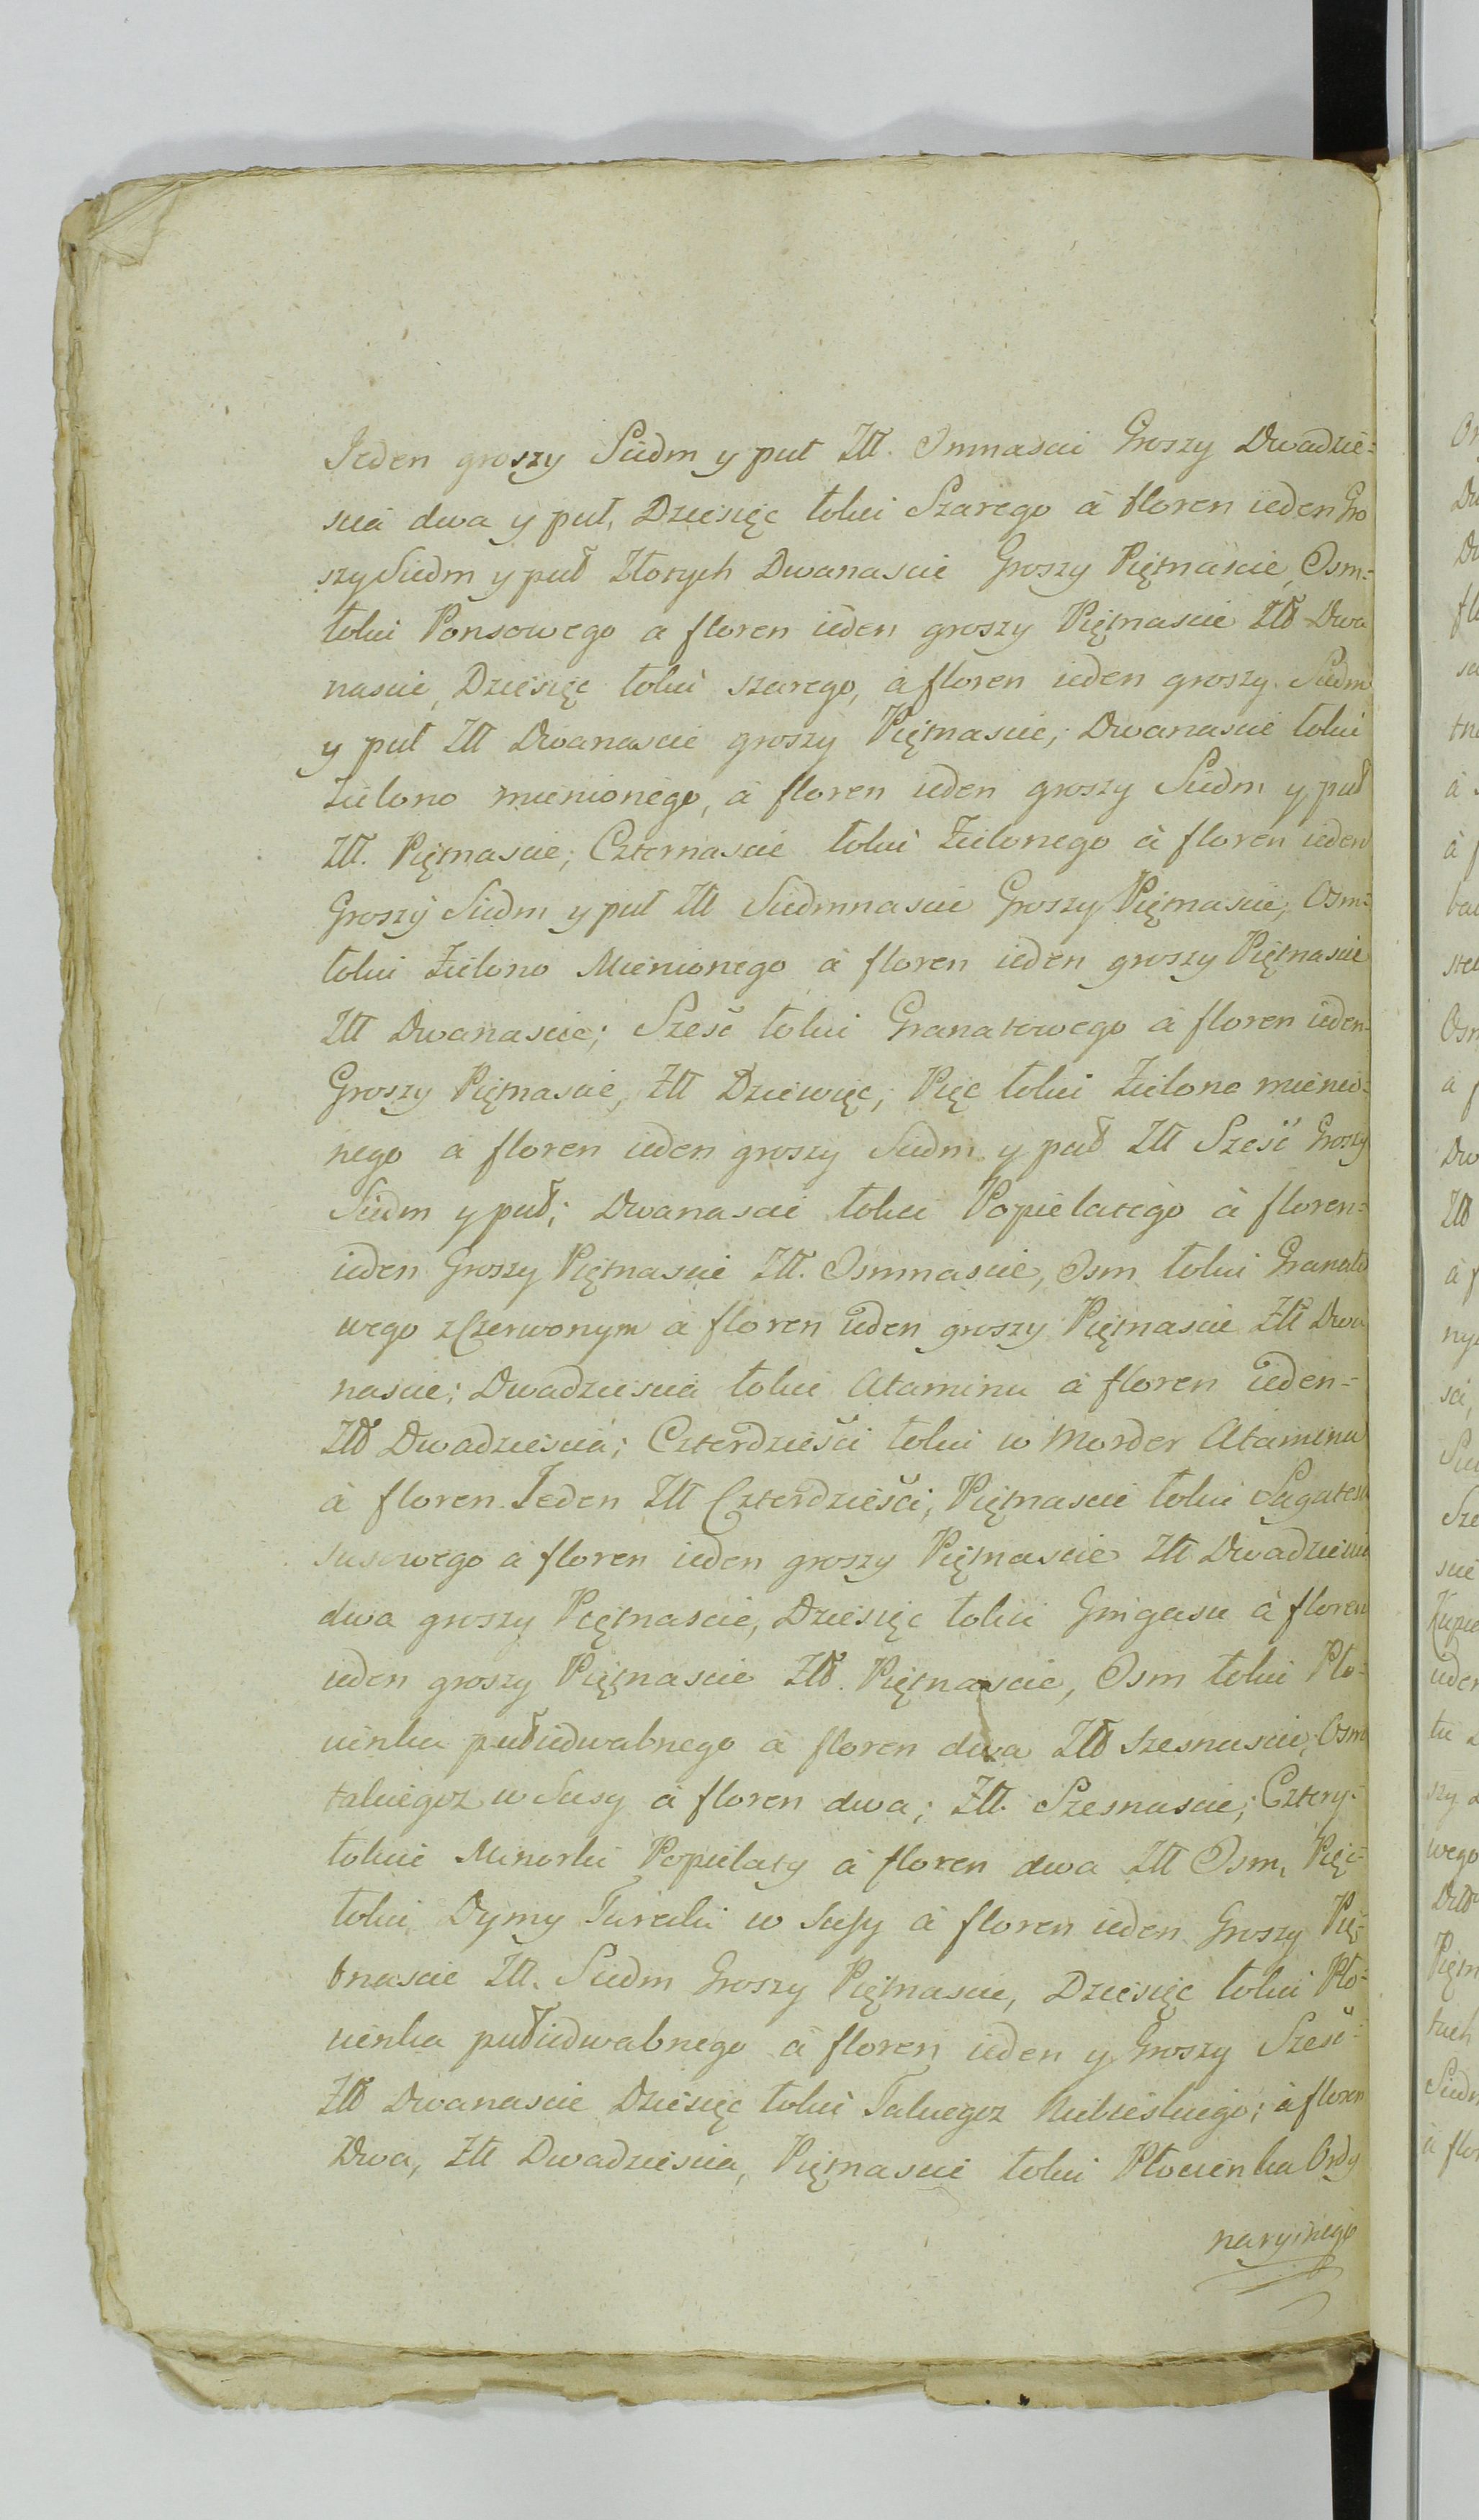 Jeden groszy Siedm y puł Złł. Osmnascie Groszy Dwadzie=
scia dwa y puł, Dziesięc łokci Szarego à floren ieden Gro
szy Siedm y puł Złotych Dwanascie Groszy Piętnascie, Osm=
łokci Ponsowego a floren ieden groszy Piętnascie Złł Dwa
nascie, Dziesięc łokci szarego, à floren ieden groszy Siedm
y puł Złł Dwanascie groszy Piętnascie; Dwanascie łokci
Zielono mienionego, à floren ieden groszy Siedm y puł
Złł. Piętnascie; Czternascie łokci Zielonego à floren ieden
Groszy Siedm y puł Złł Siedmnascie Groszy Piętnascie, Osm=
łokci Zielono Mienionego à floren ieden groszy Piętnascie
Złł Dwanascie; Sześć łokci Granatowego à floren ieden=
Groszy Piętnascie, Złł Dziewięc; Pięc łokci Zielono mienio=
nego a floren ieden groszy Siedm y puł Złł Sześć Groszy
Siedm y puł; Dwanascie łokci Popielatego à floren=
ieden Groszy Piętnascie Złł. Osmnascie, Osm łokci Granato
wego z Czerwonym à floren ieden groszy Piętnascie Złł Dwa
nascie; Dwadziescia łokci Ataminu à floren ieden=
Złł Dwadziescia; Czterdzieści łokci w Morder Ataminu
à floren Jeden Złł Czterdzieści; Piętnascie łokci
à floren ieden groszy Piętnascie Złł Dwadziescia
dwa groszy Piętnascie, Dziesięc łokci Gingasu à floren
ieden groszy Piętnascie Złł. Piętnascie, Osm łokci Pło=
cienka pułiedwabnego à floren dwa Złł szesnascie; Osm
w Susy à floren dwa; Złł. Szesnascie; Cztery=
łokcie Minorki Popielaty à floren dwa Złł Osm, Pięć=
łokci Dymy Turecki w Susy à floren ieden Groszy Pię=
tnascie Złł. Siedm Groszy Piętnascie, Dziesięc łokci Pło=
cienka pułiedwabnego à floren ieden y Groszy Sześć=
Złł Dwanascie Dziesięc łokci Niebieskiego; à floren
Dwa, Złł Dwadziescia, Piętnascie łokci Płocienka Ordy
naryinego